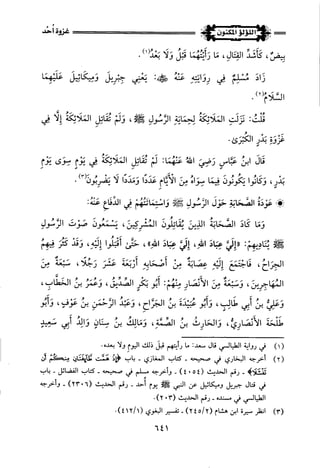 غزوة أحد
اللؤلؤ المكنون
بِيضٌ، كَأَشَدِّ القِتَالِ، مَا رَأَيْتُهُمَا قَبْلُ وَلَا بَعْدُ(١).
زَادَ مُسْلِمٌ فِي رِوَايَتِهِ عَنْهُ ﷺ: يَعْنِي جِبْرِيلَ وَمِيكَائِيلَ عَلَيْهِمَا
السَّلَامُ(٢).
قُلْتُ: نَزَلَتِ المَلَائِكَةُ لِحِمَايَةِ الرَّسُولِ ﷺ، وَلَمْ تُقَاتِلِ المَلَائِكَةُ إِلَّا فِي
غَزْوَةِ بَدْرٍ الكُبْرَى.
قَالَ ابنُ عَبَّاسٍ رَضِيَ اللهُ عَنْهُمَا: لَمْ تُقَاتِلِ المَلَائِكَةُ فِي يَوْمٍ سِوَى يَوْمِ
بَدْرٍ، وَكَانُوا يَكُونُونَ فِيمَا سِوَاهُ مِنَ الأَيَّامِ عَدَدًا وَمَدَدًا لَا يَضْرِبُونَ(٣).
◉ عَوْدَةُ الصَّحَابَةِ حَوْلَ الرَّسُولِ ﷺ وَاسْتِمَاتَتُهُمْ فِي الدِّفَاعِ عَنْهُ:
وَمَا كَادَ الصَّحَابَةُ الذِينَ يُقَاتِلُونَ المُشْرِكِينَ، يَسْمَعُونَ صَوْتَ الرَّسُولِ
ﷺ يُنَادِيهِمْ: «إِلَيَّ عِبَادَ اللهِ، إِلَيَّ عِبَادَ اللهِ»، حَتَّى أَقْبَلُوا إِلَيْهِ، وَقَدْ كَثُرَ فِيهِمُ
الجِرَاحُ، فَاجْتَمَعَ إِلَيْهِ عِصَابَةٌ مِنْ أَصْحَابِهِ أَرْبَعَةَ عَشَرَ رَجُلًا، سَبْعَةٌ مِنَ
المُهَاجِرِينَ، وَسَبْعَةٌ مِنَ الأَنْصَارِ مِنْهُمْ: أَبُو بَكْرٍ الصِّدِّيقُ، وَعُمَرُ بنُ الخَطَّابِ،
وَعَلِيُّ بنُ أَبِي طَالِبٍ، وَأَبُو عُبَيْدَةَ بنُ الجَرَّاحِ، وَعَبْدُ الرَّحْمَنِ بنُ عَوْفٍ، وَأَبُو
طَلْحَةَ الأَنْصَارِيُّ، وَالحَارِثُ بنُ الصِّمَّةِ، وَمَالِكُ بنُ سِنَانٍ وَالِدُ أَبِي سَعِيدٍ
(١) في رواية الطيالسي قال سعد: ما رأيتهم قبل ذلك اليوم ولا بعده.
(٢) أخرجه البخاري في صحيحه - كتاب المغازي - باب
تَفْشَلَا﴾ - رقم الحديث (٤٠٥٤) - وأخرجه مسلم في صحيحه - كتاب الفضائل - باب
في قتال جبريل وميكائيل عن النبي ﷺ يوم أحد - رقم الحديث (٢٣٠٦) - وأخرجه
الطيالسي في مسنده - رقم الحديث (٢٠٣).
(٣) انظر سيرة ابن هشام (٢٤٥/٢) - تفسير البغوي (٤١٢/١).
٦٤١